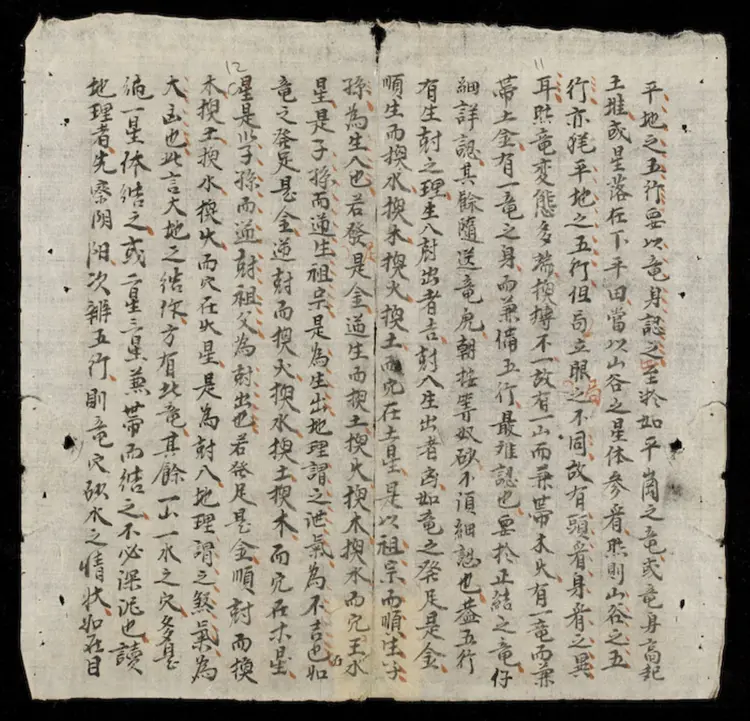 平地之五行要以竜身認之至於如平崗之竜或竜身高起
土堆或星落在下平田當以山谷之星体參看然則山谷之五
行亦猶平地之五行但立眠之不同故有頭看身看之異
11
耳然竜变態多端換轉不一故有一山而兼帶木火有一竜而兼
帶土金有一竜之身而兼備五行最难認也要於正結之竜仔
細詳認其餘隨送竜虎朝接等奴砂不湏細認也盖五行
有生尅之理生入尅出者吉尅入生出者凶如竜之發足是金
順生而換水換木換火換土而穴在土星是以祖宗而順生子
孫為生入也若發是金逆生而換土換火換木換水而穴王水
星是子孫而逆生祖宗是為生出地理謂之泄氣為不吉也如
竜之發足是金逆尅而換火換水換土換木而穴在木星
12
星是以子孫而逆尅祖父為尅出也若發足是金順尅而換
木換土換水換火而穴在火星是為尅入地理謂之煞氣為
大凶也此言大地之結作方有此竜其餘一山一水之穴多是
一星体結之或二星三星兼帶而結之不必深泥也讀
地理者先察阴阳次辨五行則竜穴砂水之情状如在目